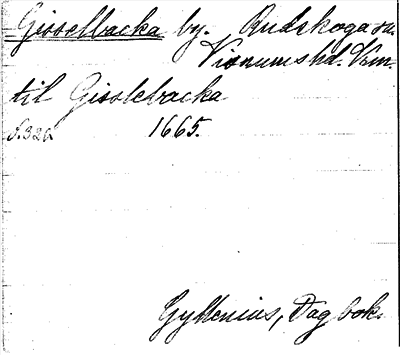 Gisselbacka by. Rudskoga sn.
Visnums hd. Vrm.
til Gisslebacka
s. 320 1665.
Gyllenius, Dagbok.